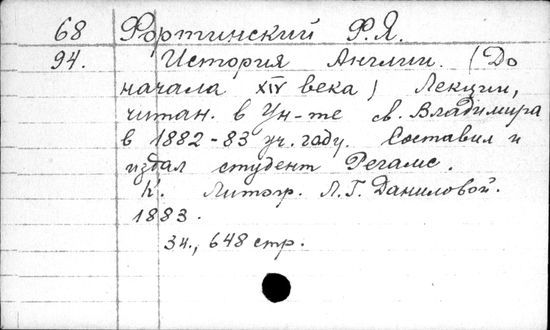 68 Фортинский Ф.Я.
94. История Англии. (До
начала XIV века) Лекции,
читан. в Ун-те св. Владимира
в 1882-83 уч. году. Составил и
издал студент Регаме.
К. Литогр. Л.Г. Даниловой.
1883.
34., 648 стр.